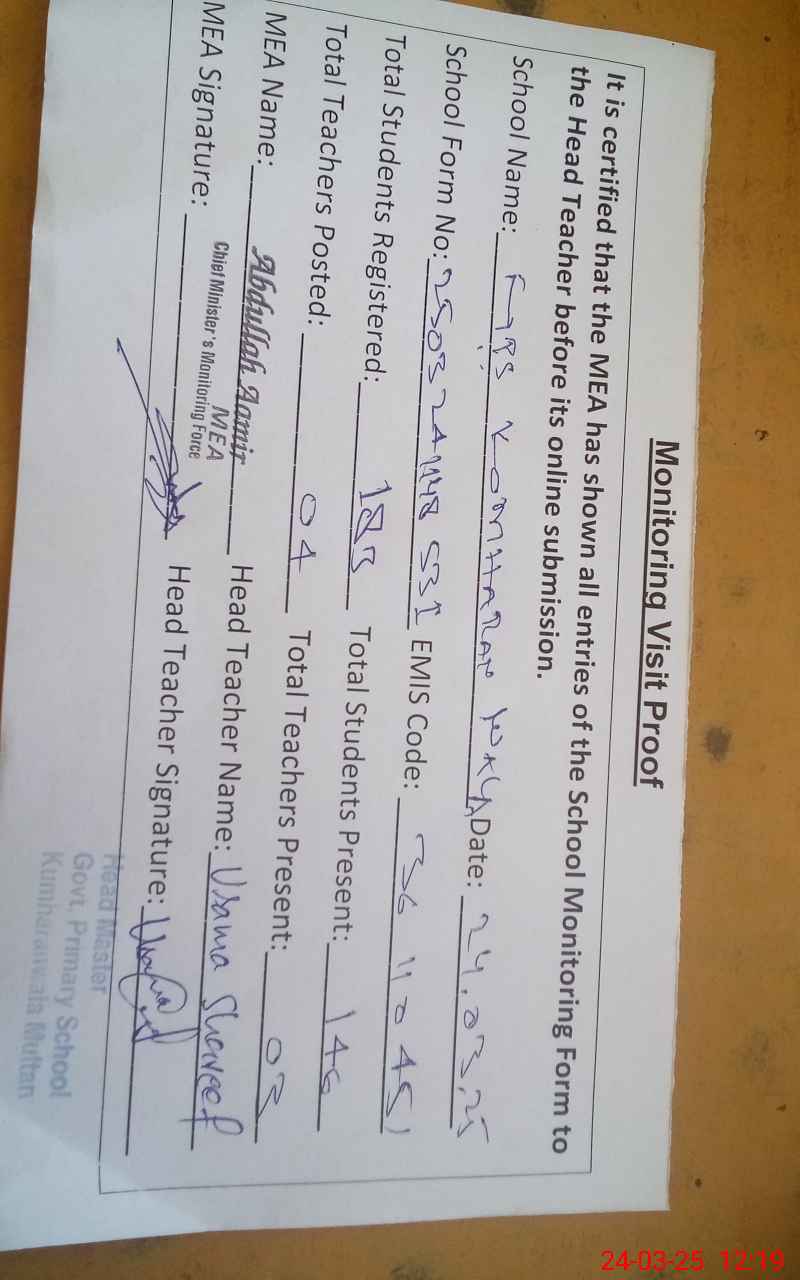 Monitoring Visit Proof
It is certified that the MEA has shown all entries of the School Monitoring Form to
the Head Teacher before its online submission.
School Name: KOMHARAN Date: 24.03.25
School Form No: EMIS Code: 36110451
Total Students Registered: 183 Total Students Present: 146
Total Teachers Posted: 04 Total Teachers Present: 03
MEA Name: Abdullah Aamir Head Teacher Name: Usama Shareef
MEA
Chief Minister's Monitoring Force
MEA Signature: Head Teacher Signature:
Head Master
Govt. Primary School
Kumharanwala Multan
24-03-25 12:19